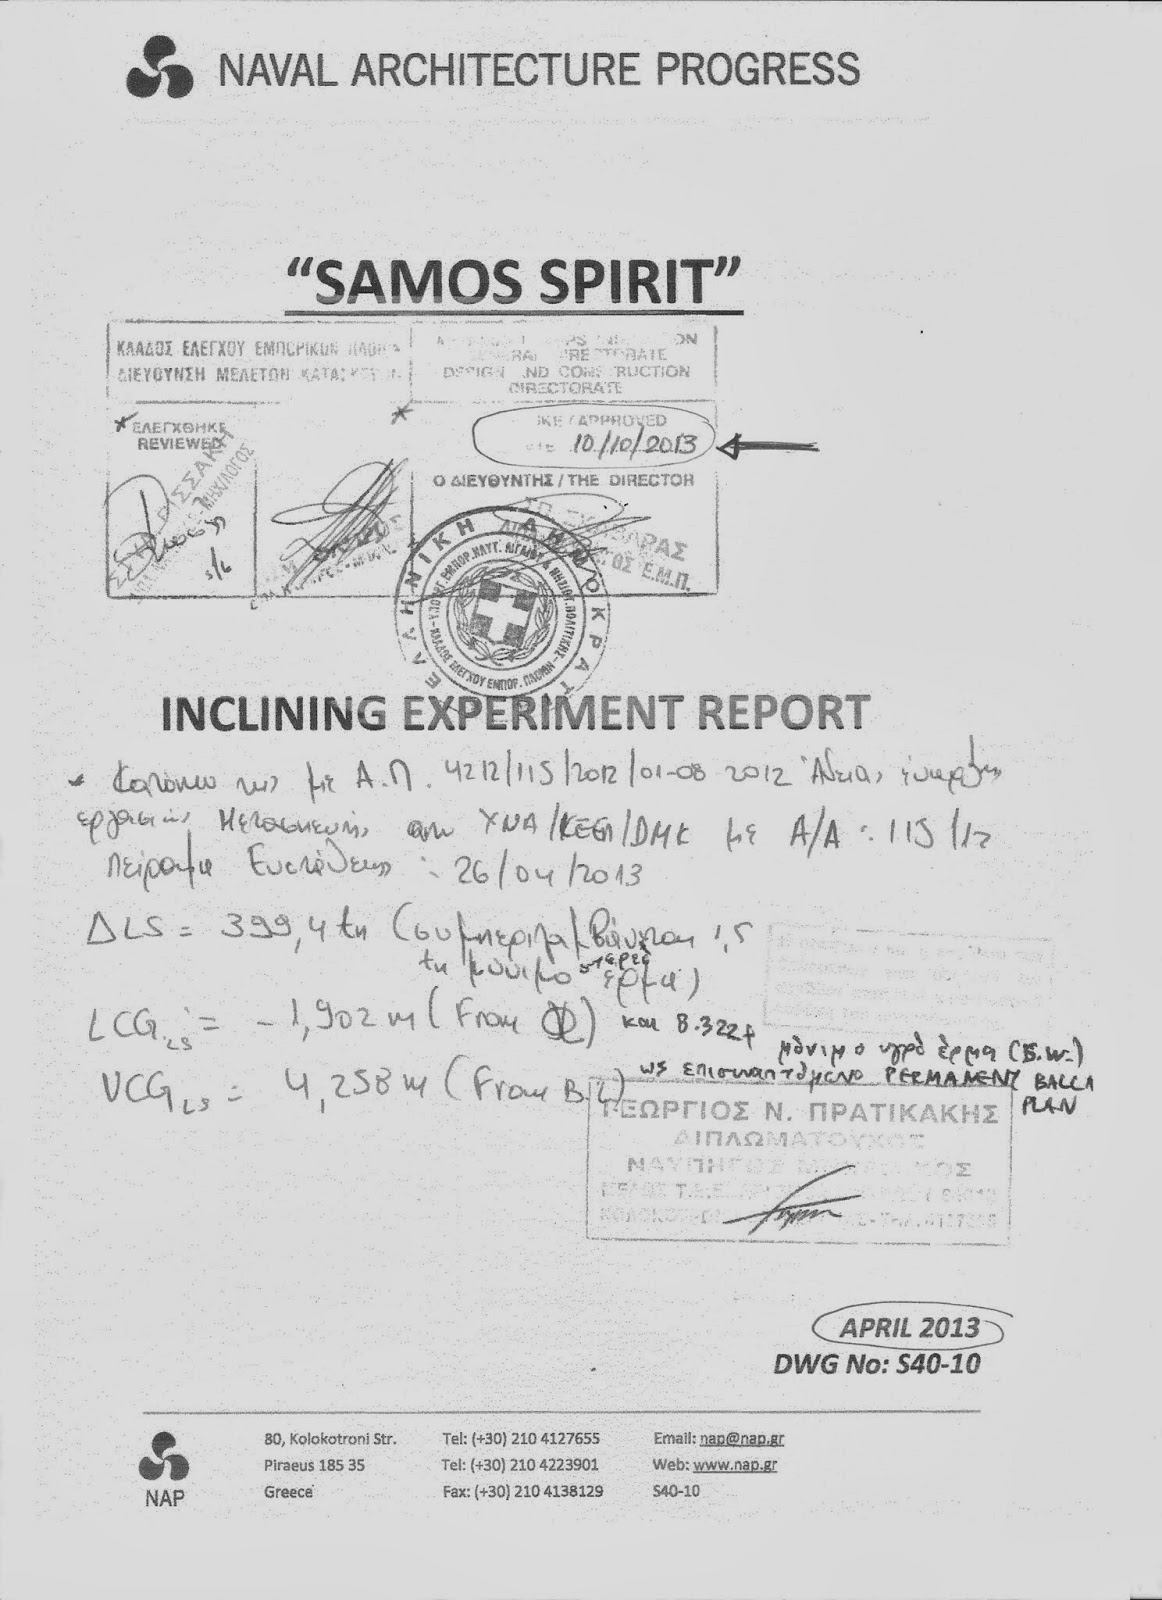 NAVAL ARCHITECTURE PROGRESS
“SAMOS SPIRIT”
ΚΛΑΔΟΣ ΕΛΕΓΧΟΥ ΕΜΠΟΡΙΚΩΝ ΠΛΟΙΩΝ
ΔΙΕΥΘΥΝΣΗ ΜΕΛΕΤΩΝ ΚΑΤΑΣΚΕΥΩΝ
DIRECTORATE
DESIGN AND CONSTRUCTION
DIRECTORATE
* ΕΛΕΓΧΘΗΚΕ
REVIEWED
*
/ APPROVED
10/10/2013
Ο ΔΙΕΥΘΥΝΤΗΣ / THE DIRECTOR
Ε.Μ.Π.
ΕΛΛΗΝΙΚΗ ΔΗΜΟΚΡΑΤ
INCLINING EXPERIMENT REPORT
* Κατόπιν της με Α.Π. 4212/115/2012/01-08 2012 Άδειας έναρξης
εργασιών Μετασκευής από ΥΝΑ/ΚΕΕΠ/ΔΜΚ με Α/Α : 115/12
Πείραμα Ευστάθειας : 26/04/2013
ΔLS = 399,4 tn (συμπεριλαμβάνεται 1,5
tn μόνιμο στερεό έρμα)
LCG LS = -1,902 m (From) και 8.322t
μόνιμο υγρό έρμα (S.W.)
VCG LS = 4,258 m (From B.L) ως επισυναπτόμενο PERMANENT BALLA
PLAN
ΓΕΩΡΓΙΟΣ Ν. ΠΡΑΤΙΚΑΚΗΣ
ΔΙΠΛΩΜΑΤΟΥΧΟΣ
ΝΑΥΠΗΓΟΣ ΜΗΧΑΝΙΚΟΣ
ΜΕΛΟΣ Τ.Ε.Ε.
APRIL 2013
DWG No: S40-10
80, Kolokotroni Str. Tel: (+30) 210 4127655 Email: nap@nap.gr
Piraeus 185 35 Tel: (+30) 210 4223901 Web: www.nap.gr
Greece Fax: (+30) 210 4138129 S40-10
NAP